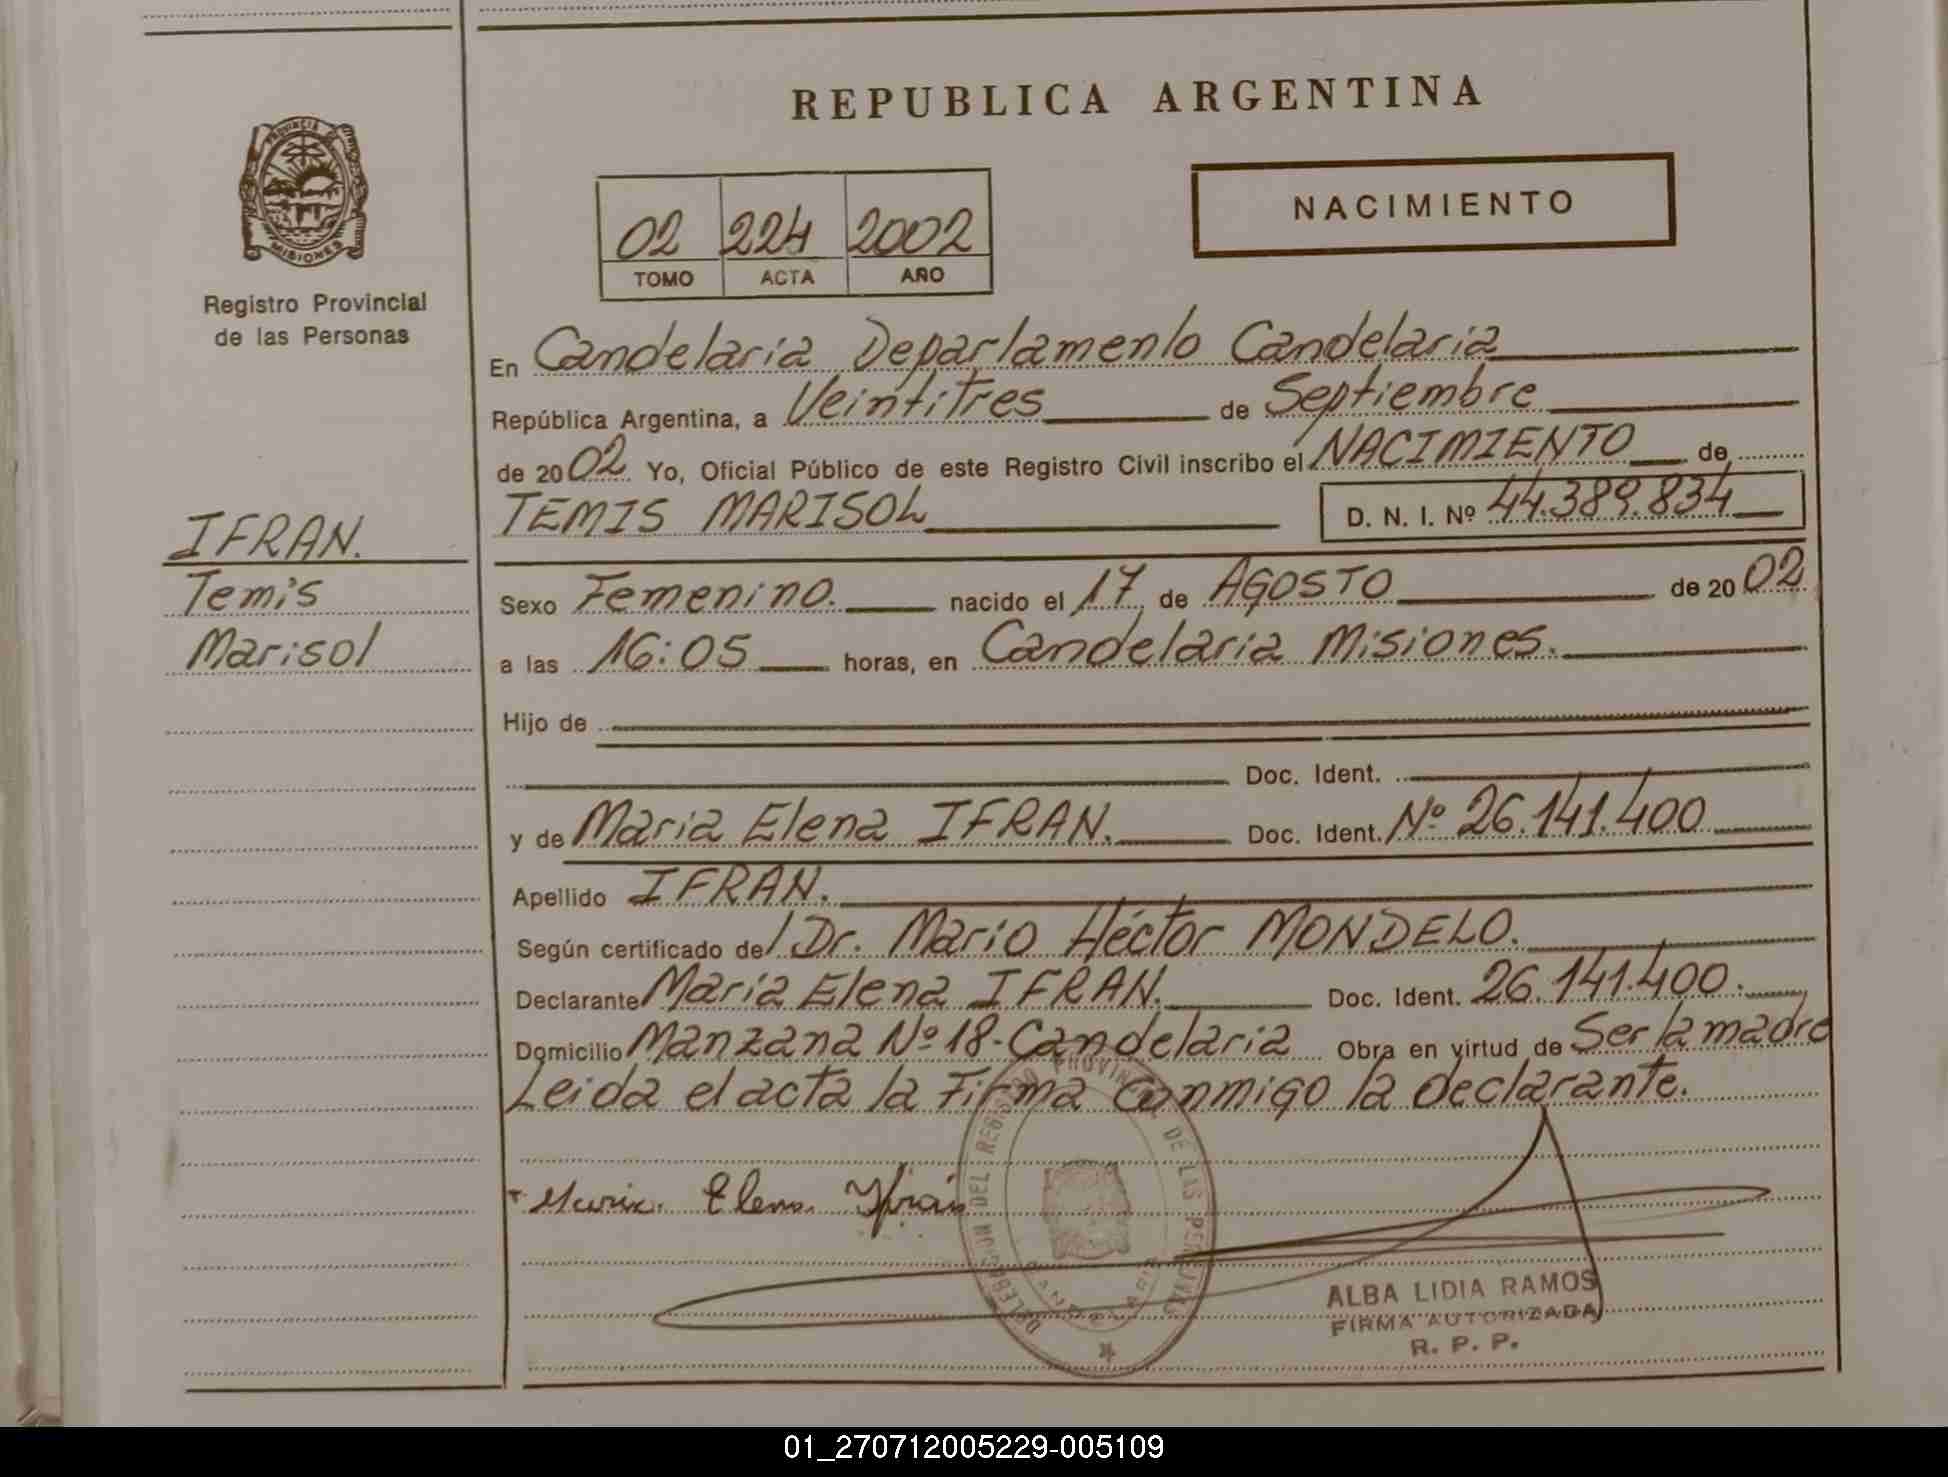 REPUBLICA ARGENTINA
PROVINCIA DE
MISIONES
Registro Provincial
de las Personas
02 224 2002
TOMO ACTA AÑO
NACIMIENTO
En Candelaria Departamento Candelaria
República Argentina, a Veintitres de Septiembre
de 2002 Yo, Oficial Público de este Registro Civil inscribo el NACIMIENTO de
TEMIS MARISOL D. N. I. Nº 44.389.834
IFRAN.
Temis
Marisol
Sexo Femenino. nacido el 17 de AGOSTO de 2002
a las 16:05 horas, en Candelaria Misiones.
Hijo de
Doc. Ident.
y de Maria Elena IFRAN. Doc. Ident. Nº 26.141.400
Apellido IFRAN.
Según certificado del Dr. Mario Héctor MONDELO.
Declarante María Elena IFRAN. Doc. Ident. 26.141.400.
Domicilio Manzana Nº 18-Candelaria Obra en virtud de Ser la madre
Leida el acta la Firma Conmigo la declarante.
Maria Elena Ifran
DELEGACION DEL REGISTRO PROVINCIAL DE LAS PERSONAS
CANDELARIA
ALBA LIDIA RAMOS
FIRMA AUTORIZADA
R. P. P.
01_270712005229-005109